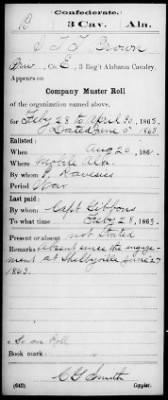 Confederate.
B
3 Cav. Ala.
Brown
Co. E, 3 Reg't Alabama Cavalry.
Appears on
Company Muster Roll
of the organization named above,
for Feby 28 to April 30, 1863.
Dated June 5 1863.
Enlisted:
When Aug 20, 186
Where Mobile Ala.
By whom P.
Period War
Last paid:
By whom Capt Gibbons
To what time Feby 28, 1863.
Present or absent not stated
Remarks: Absent since the engage-
ment at Shelbyville
1863.
on Roll
Book mark:
C G Smith
(642) Copyist.